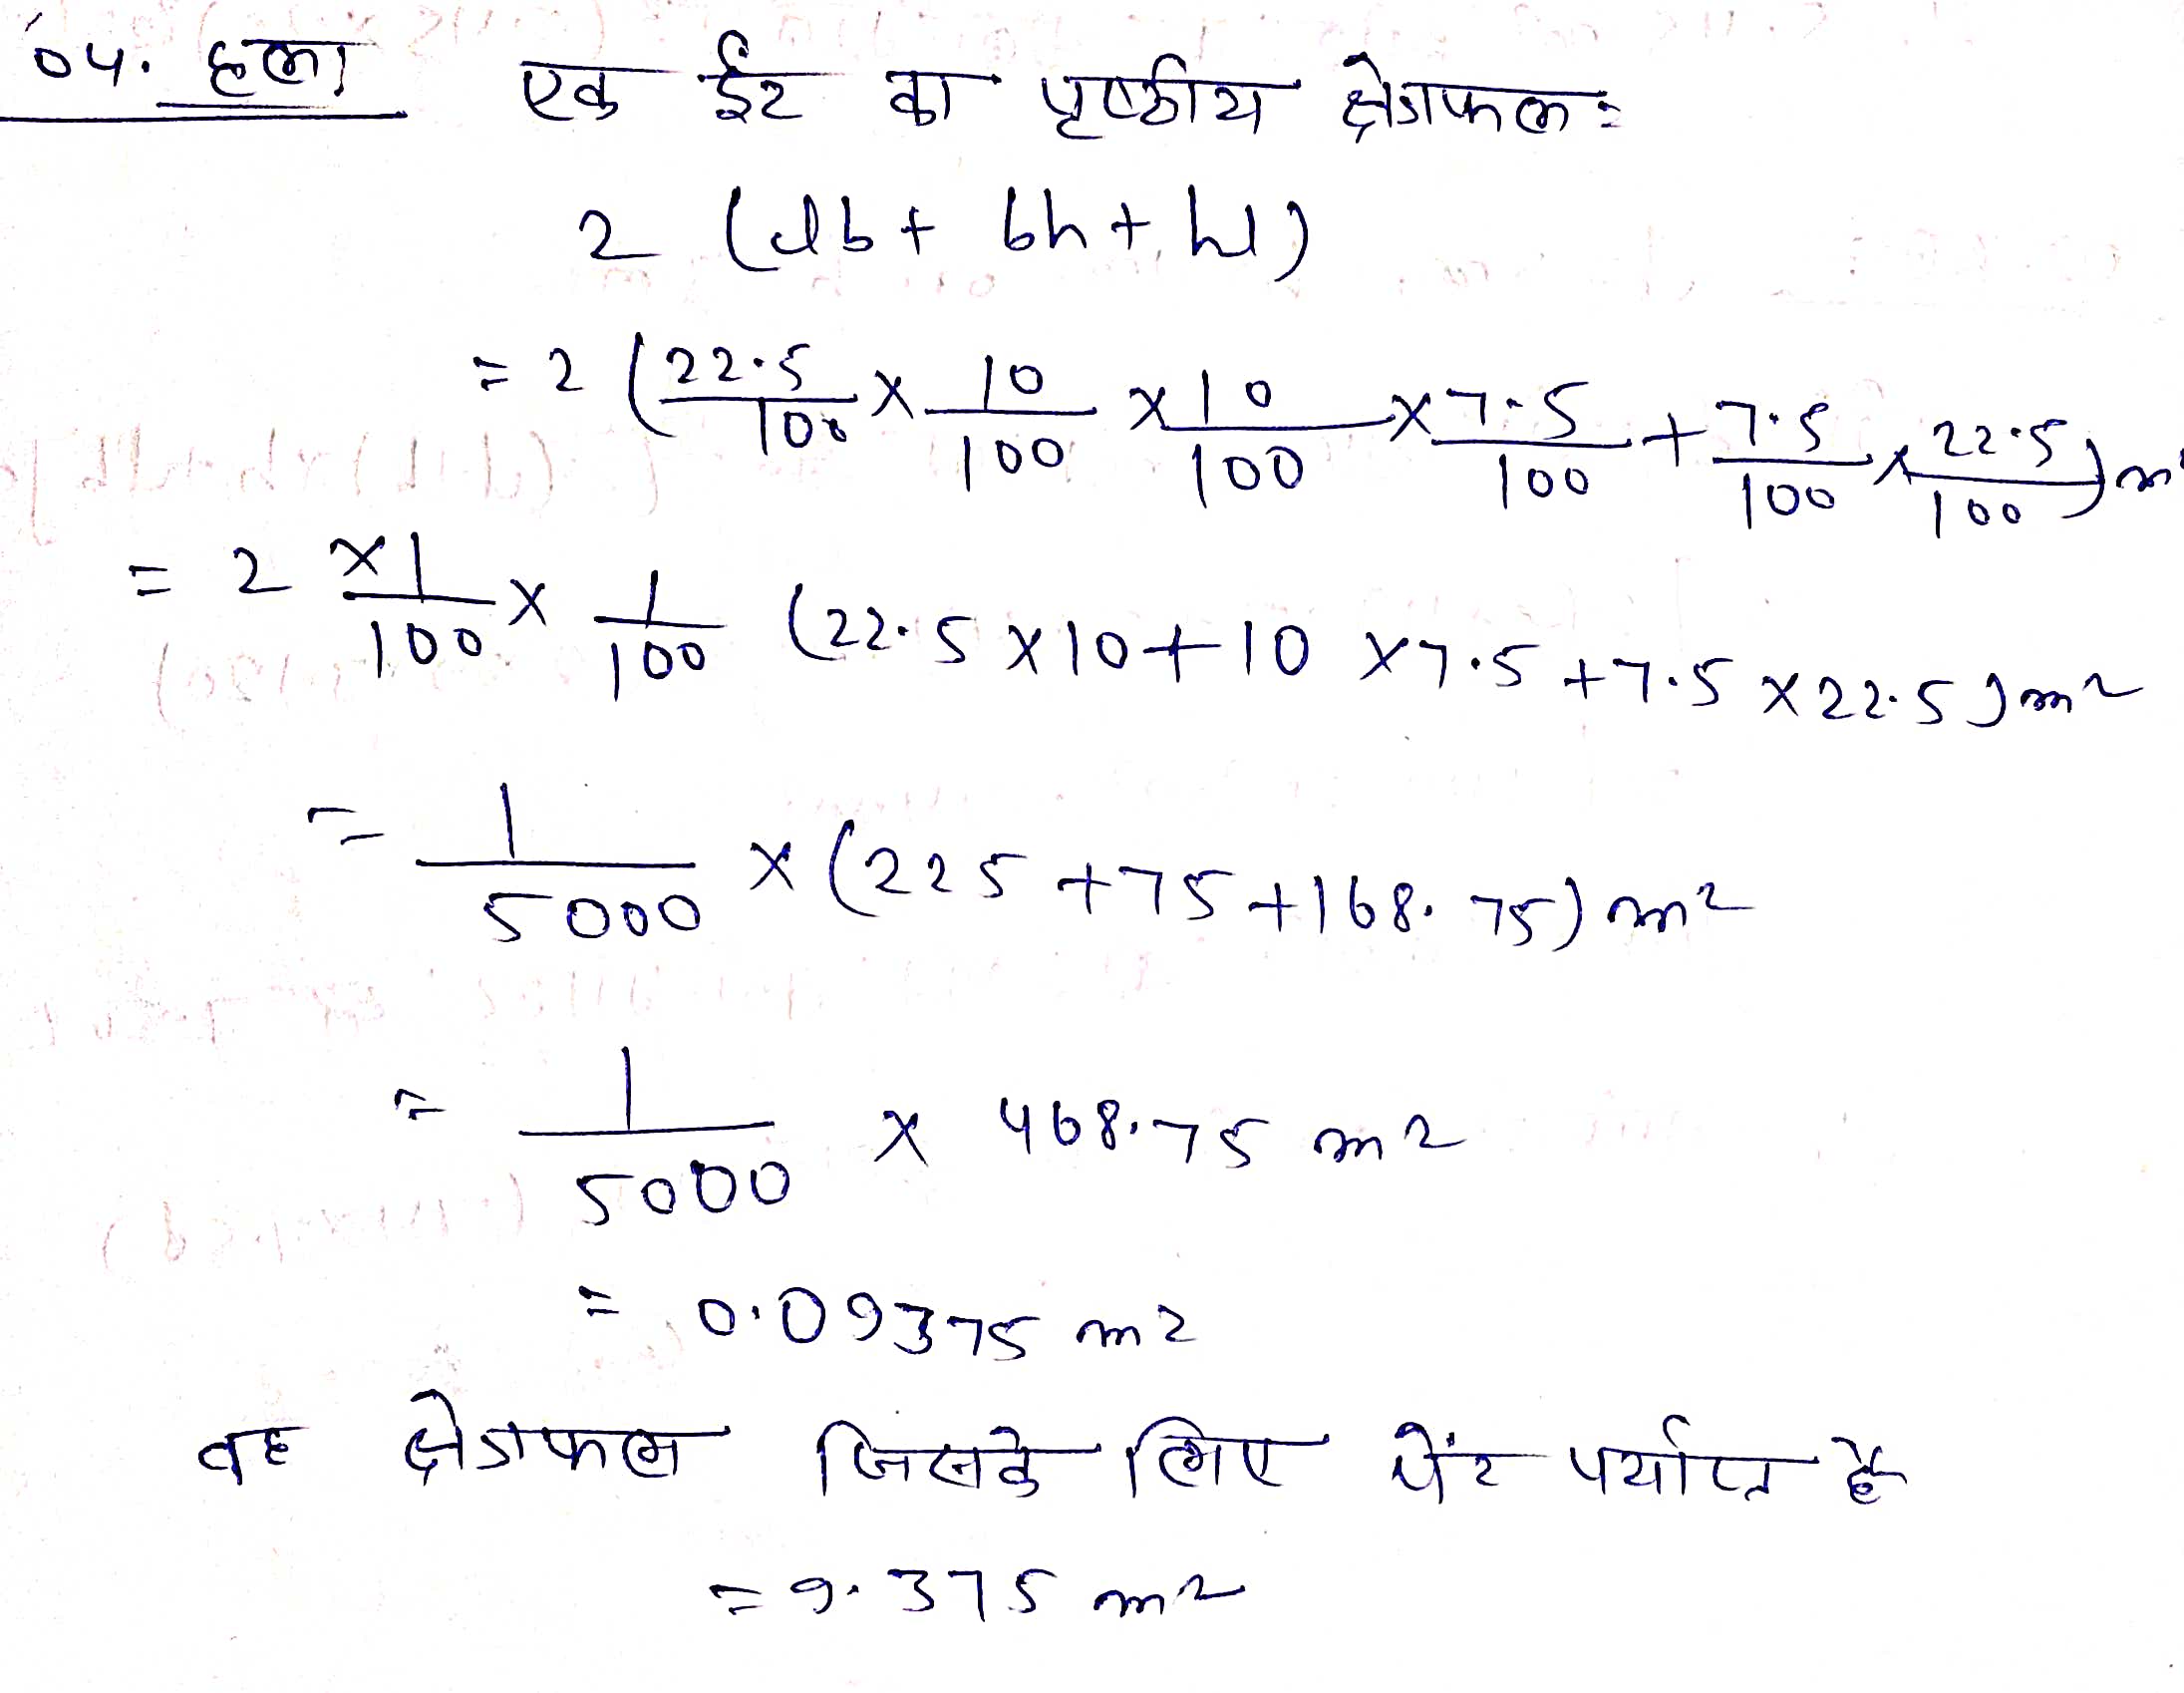 04. हल।
एक ईंट का पृष्ठीय क्षेत्रफल =
2 (lb + bh + hl)
= 2 (22.5/100 × 10/100 × 10/100 × 7.5/100 + 7.5/100 × 22.5/100) m²
= 2 × 1/100 × 1/100 (22.5 × 10 + 10 × 7.5 + 7.5 × 22.5) m²
= 1/5000 × (225 + 75 + 168.75) m²
= 1/5000 × 468.75 m²
= 0.09375 m²
वह क्षेत्रफल जिसके लिए पेंट पर्याप्त है
= 9.375 m²